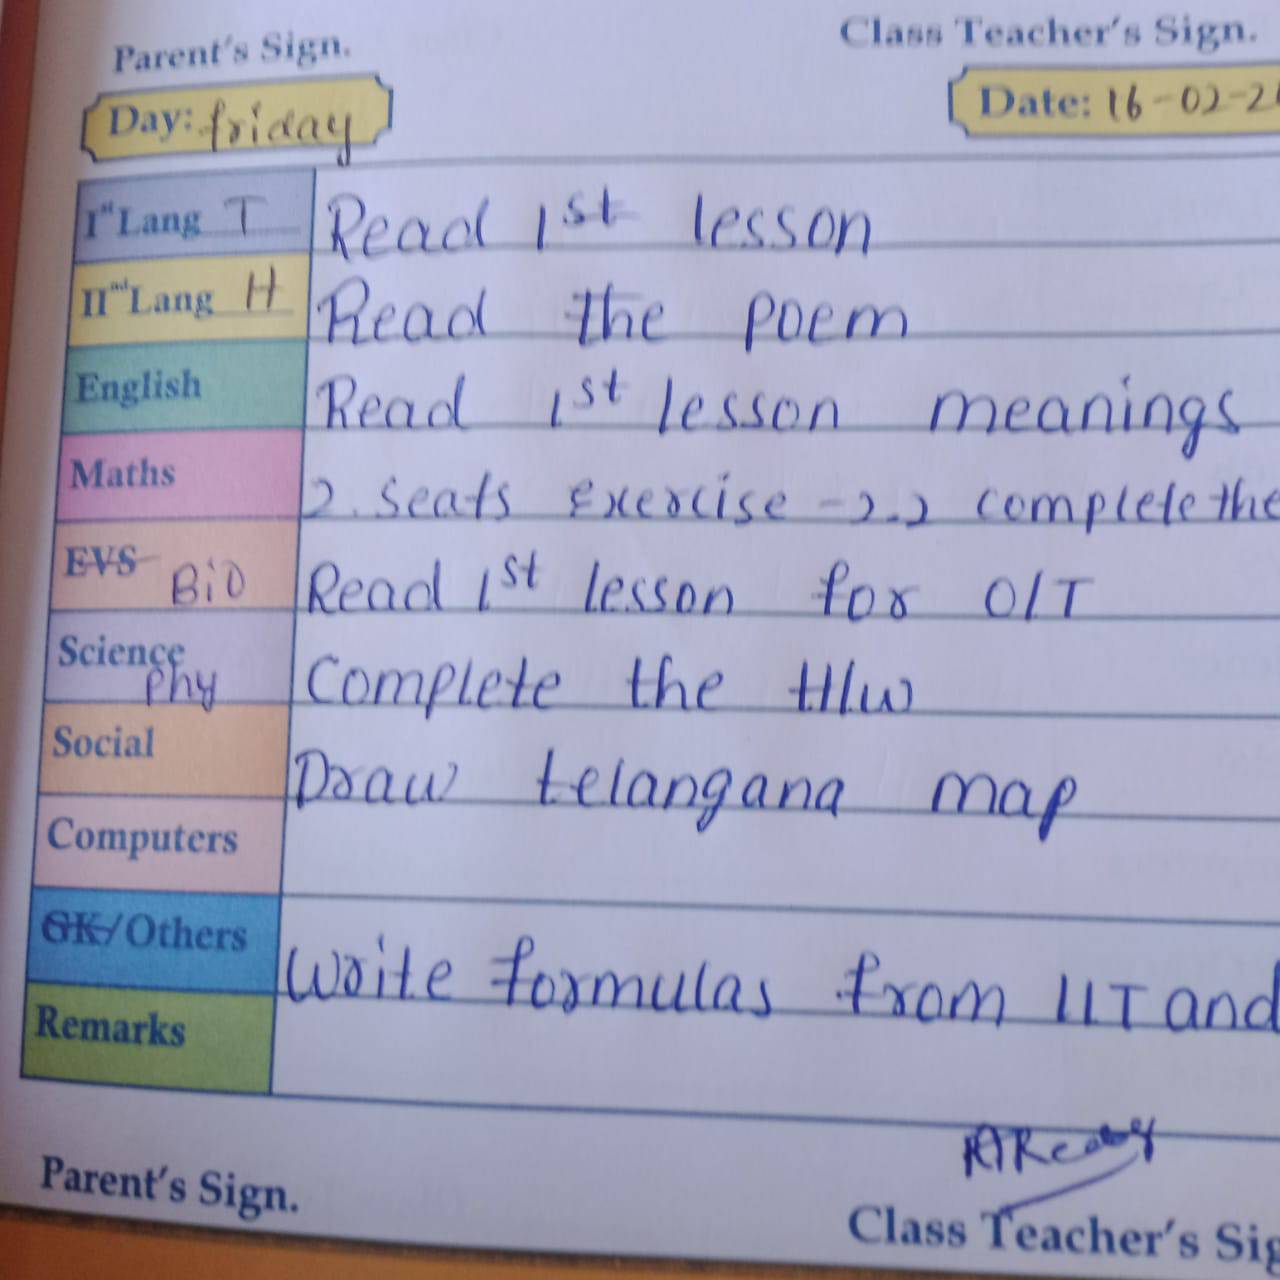 Parent's Sign. Class Teacher's Sign.
Day: friday Date: 16-02-2
Ist Lang T Read 1st lesson
IInd Lang H Read the poem
English Read 1st lesson meanings
Maths 2. seats Exercise -2.2 complete the
EVS Bio Read 1st lesson for O/T
Science phy Complete the H/w
Social Draw telangana map
Computers
GK/Others Write formulas from IIT and
Remarks
Parent's Sign. Class Teacher's Sig